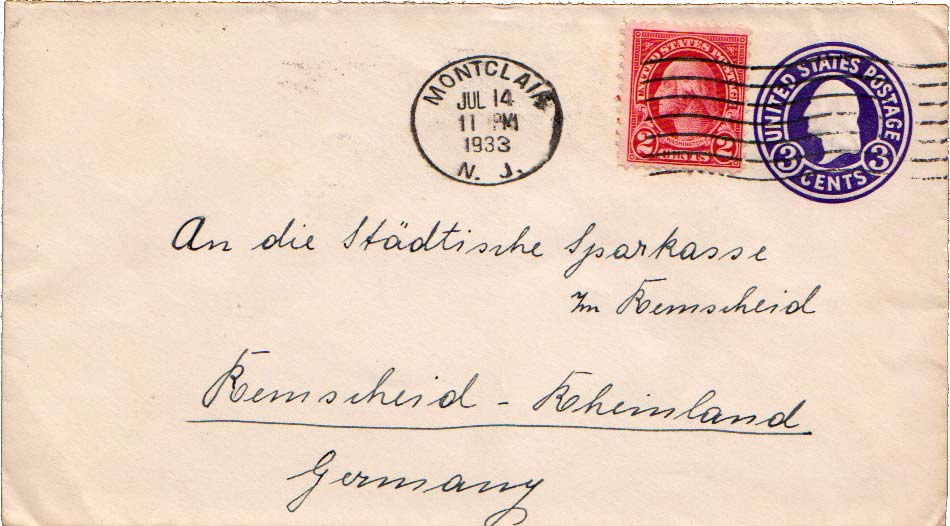 MONTCLAIR
JUL 14
11 PM
1933
N. J.
UNITED STATES POSTAGE
WASHINGTON
2 CENTS 2
UNITED STATES POSTAGE
3 CENTS 3
An die Städtische Sparkasse
In Remscheid
Remscheid - Rheinland
Germany